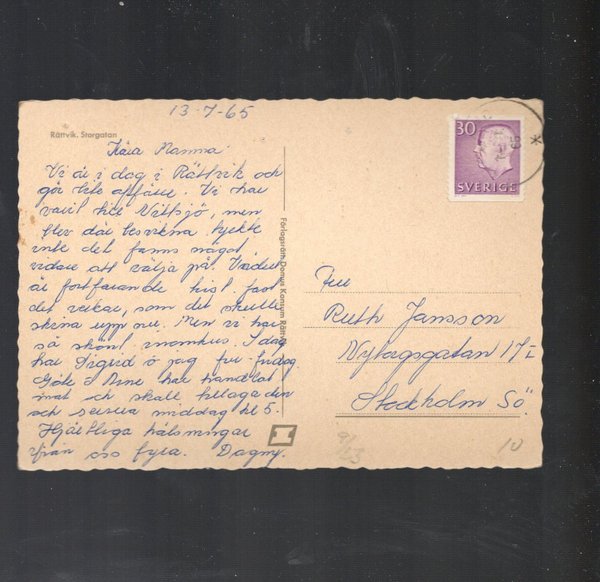 13-7-65
Rättvik. Storgatan
Kära Mamma
Vi är i dag i Rättvik och
gör lite affärer. Vi har
varit till Nittsjö, men
blev där besvikna, tyckte
inte det fanns något
vidare att välja på. Vädret
är fortfarande kisl. fast
det verkar, som det skulle
skina upp nu. Men vi har
så skönt inomhus. I dag
har Sigrid o jag fri-fridag
Göte o Arne har handlat
mat och skall tillaga den
och servera middag kl 5.
Hjärtliga hälsningar
från oss fyra. Dagny.
Förlagsrätt: Domus Konsum Rättvik
30
SVERIGE
Fru
Ruth Jansson
Nytorgsgatan 17 I
Stockholm Sö
10